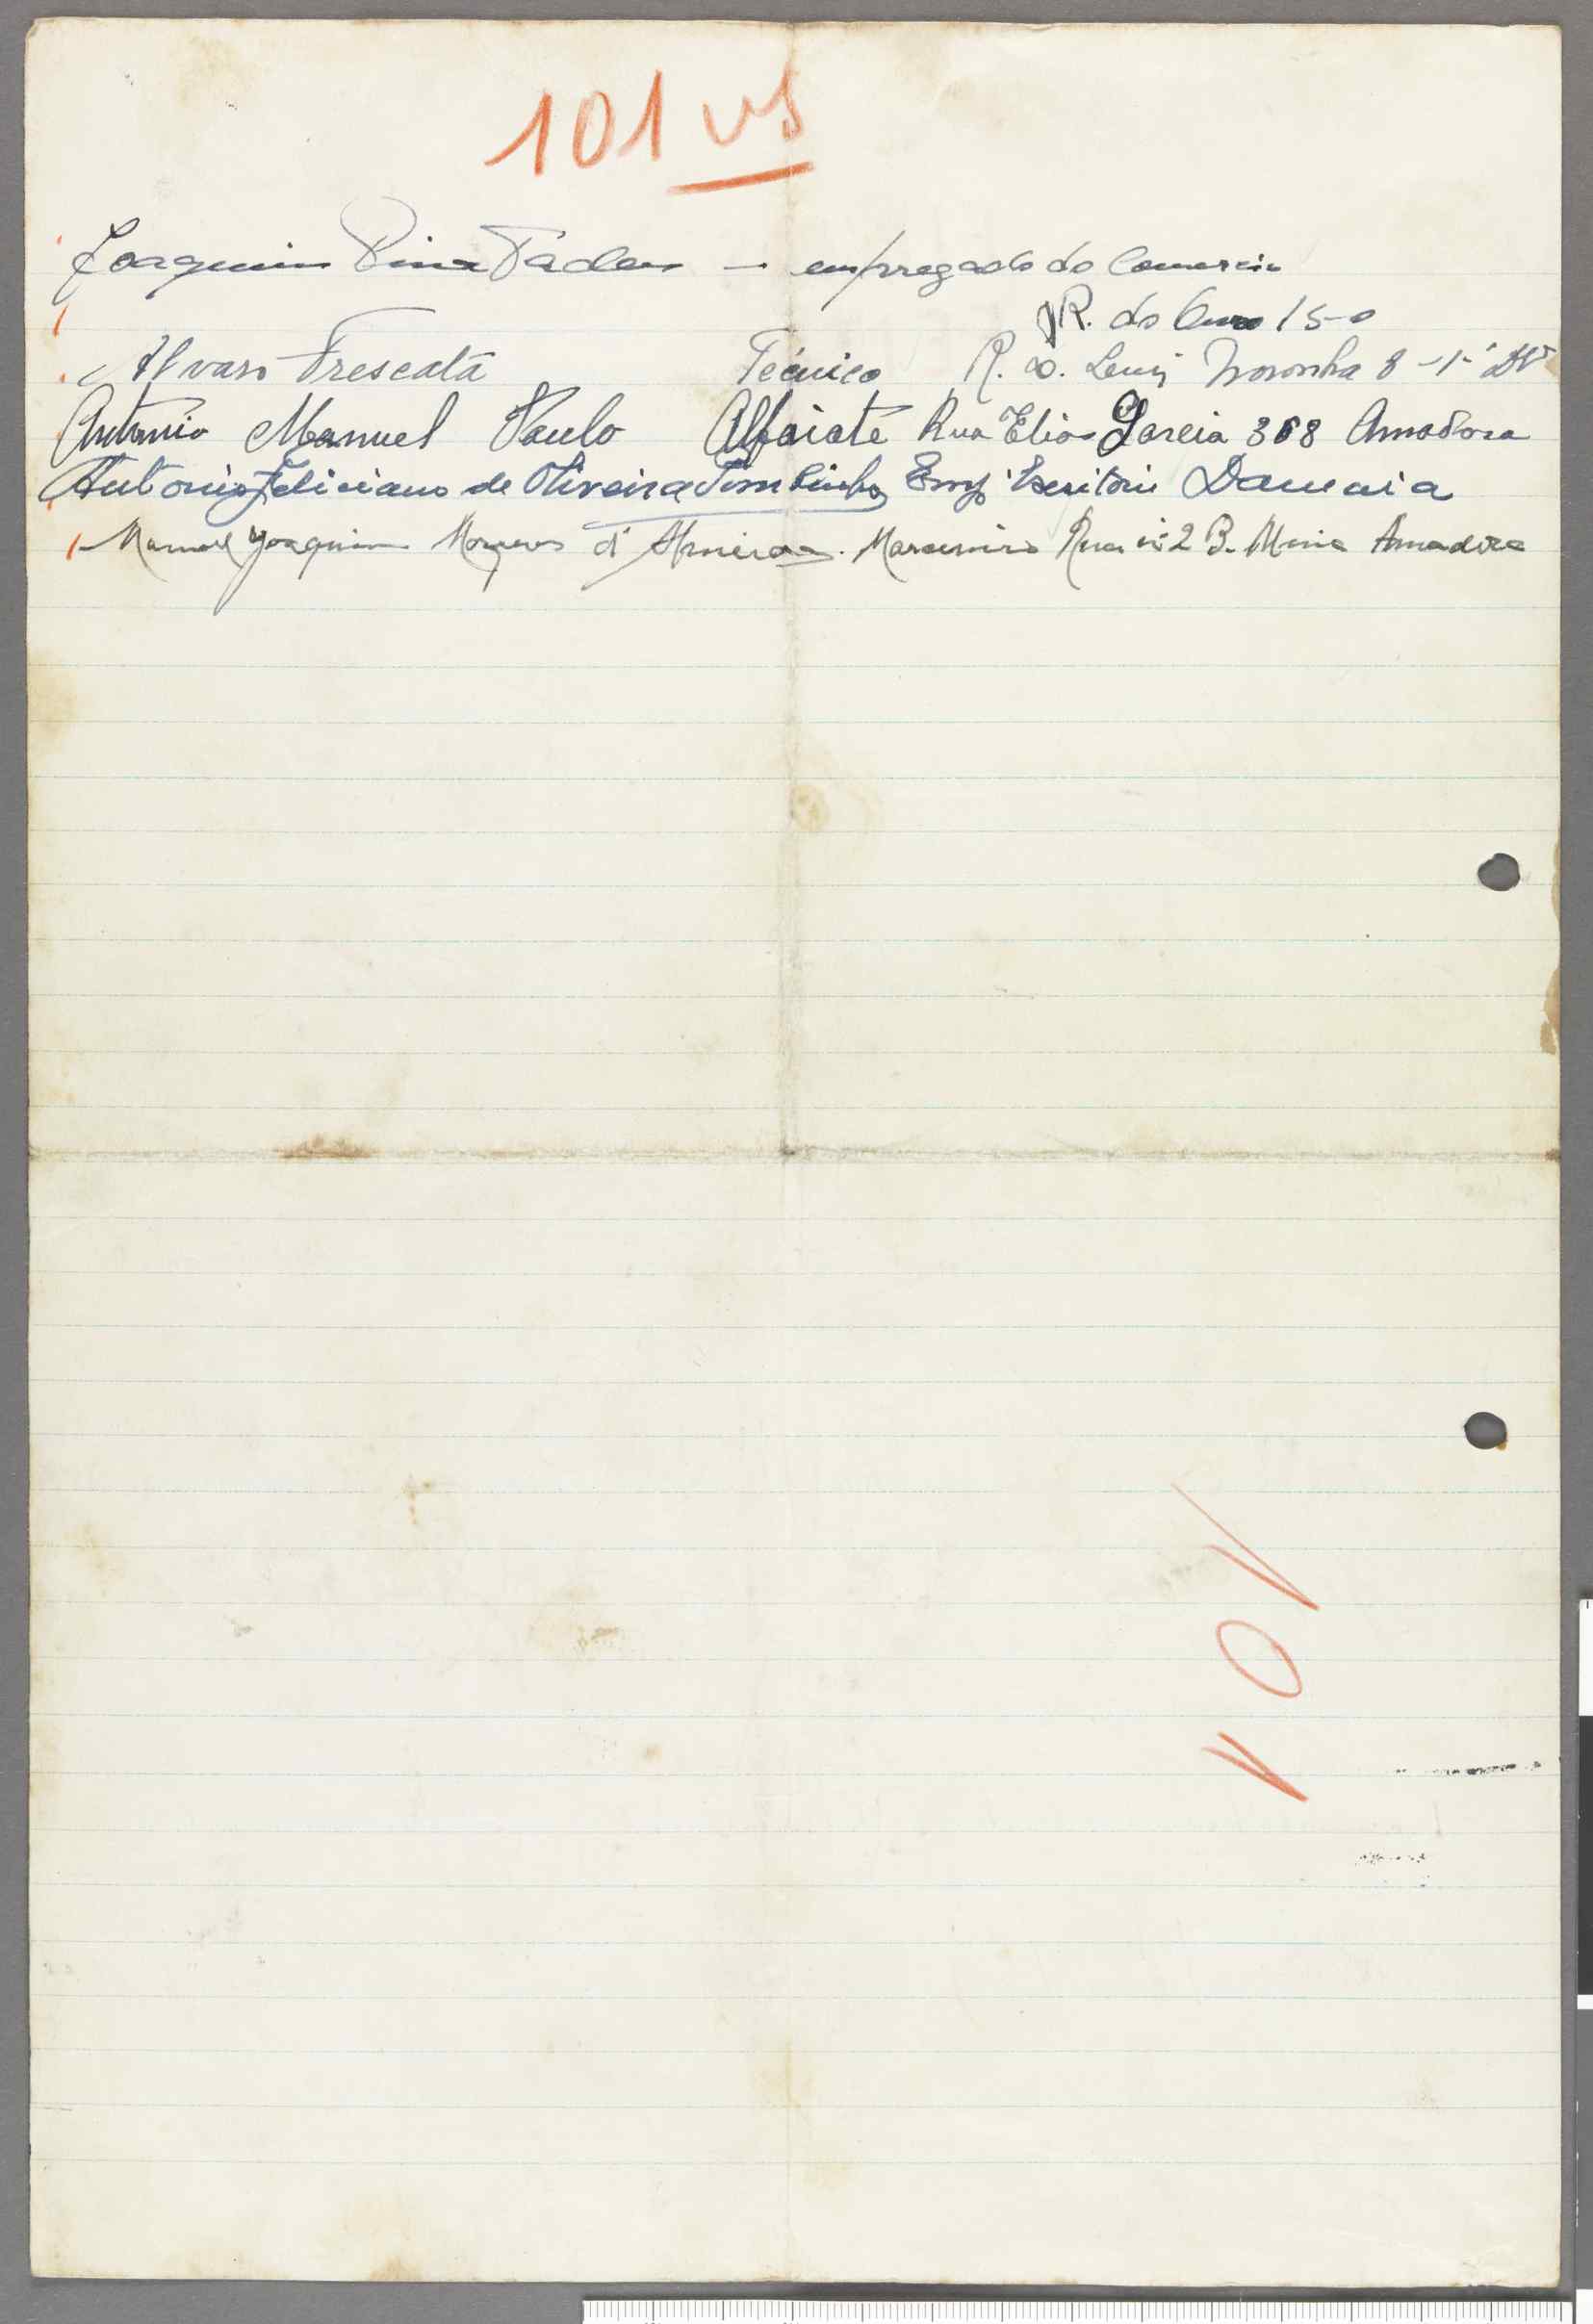 101 vs
Joaquim Pina Tadeu — empregado do Comercio
R. do Ouro 150
Alvaro Frescatã Técnico R. D. Luiz Noronha 8-1º Dtº
Antonio Manuel Paulo Alfaiate Rua Elias Garcia 368 Amadora
Antonio Feliciano de Oliveira Empº Escritorio Damaia
Manuel Joaquim d'Almeida Marceneiro Rua nº 2 B. Mina Amadora
101